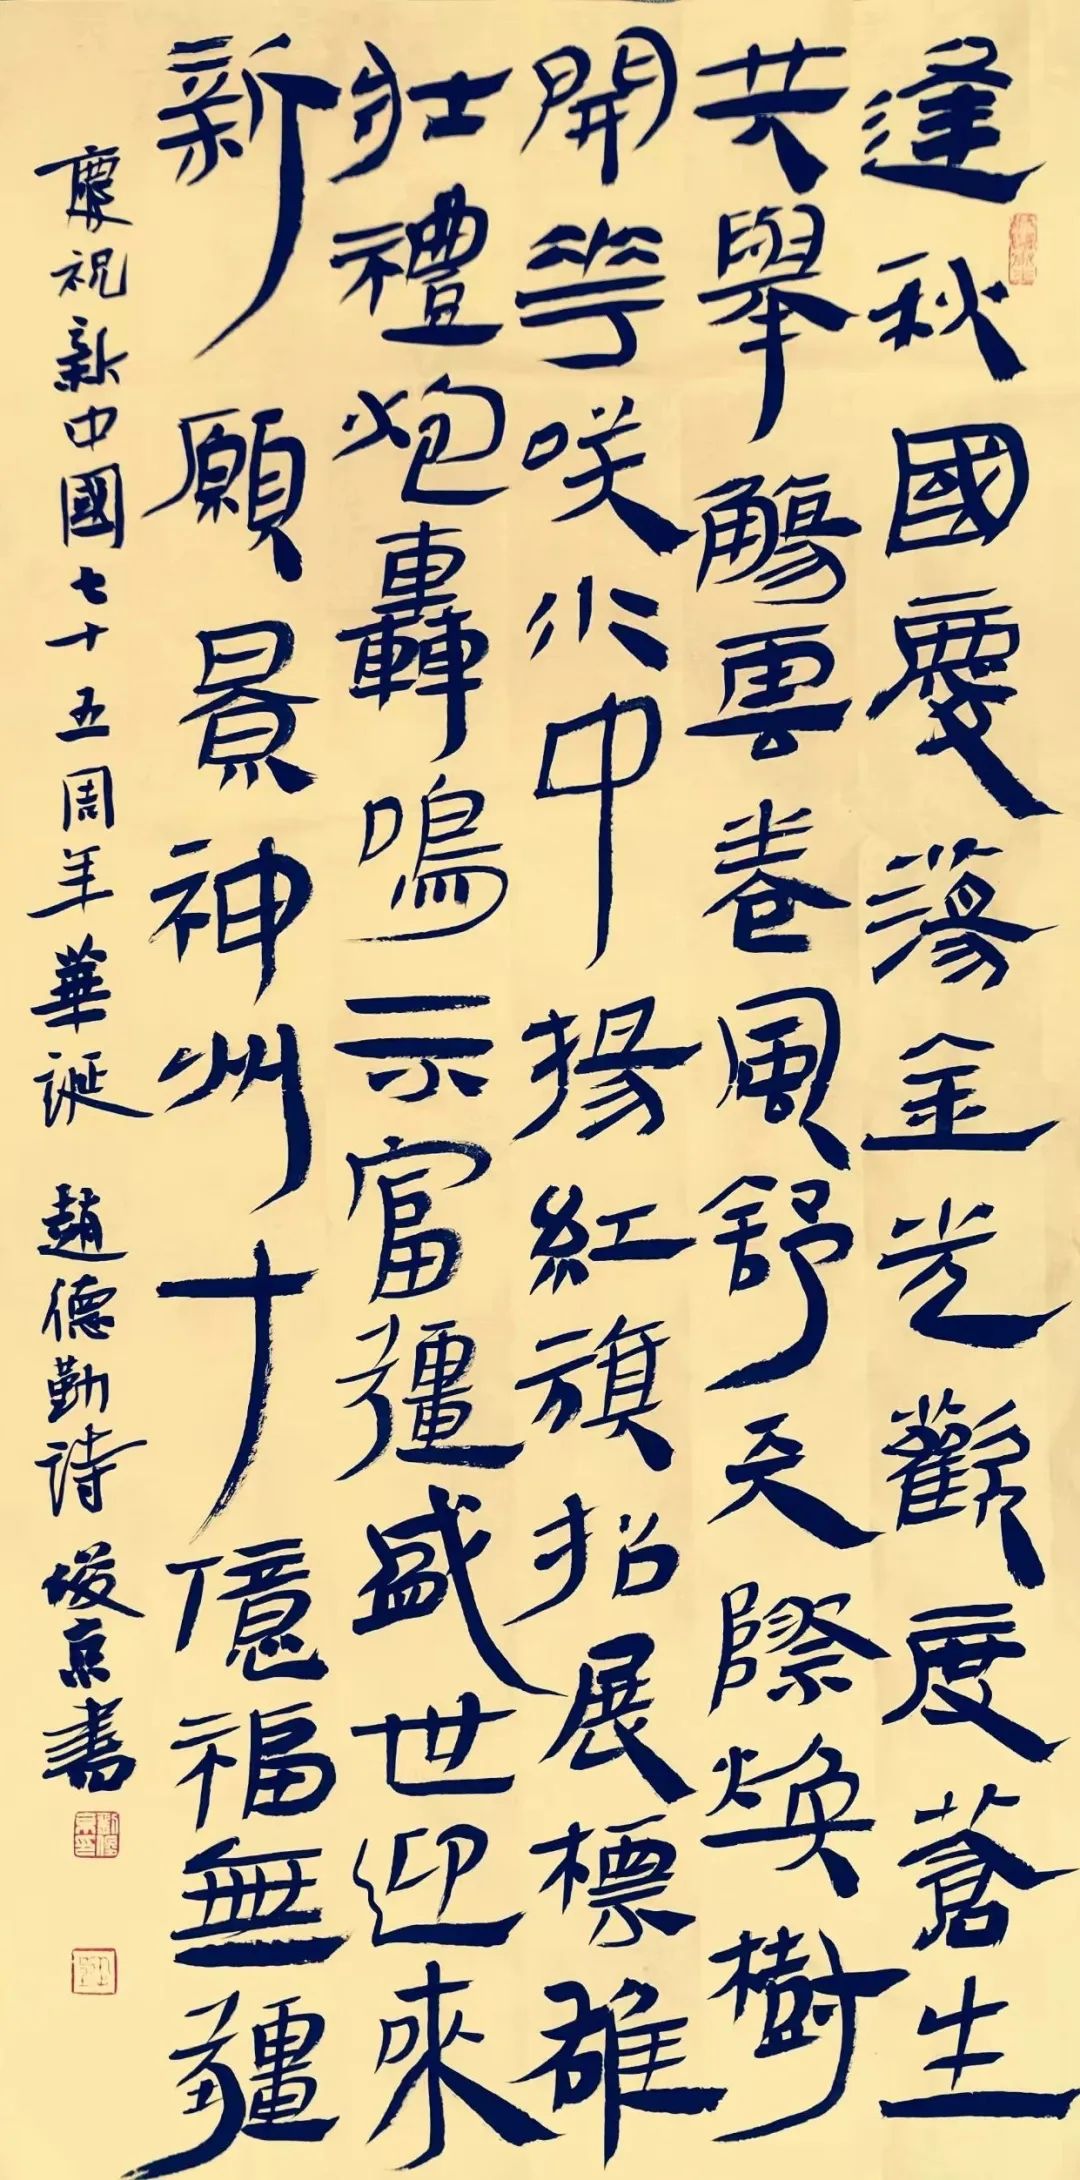 逢秋國慶蕩金光歡度蒼生
共舉觴雲卷風舒天際煥樹
開花咲心中揚紅旗招展標雄
壯禮炮轟鳴示富彊盛世迎來
新願景神州十億福無疆
慶祝新中國七十五周年華誕 趙德勤詩 俊京書